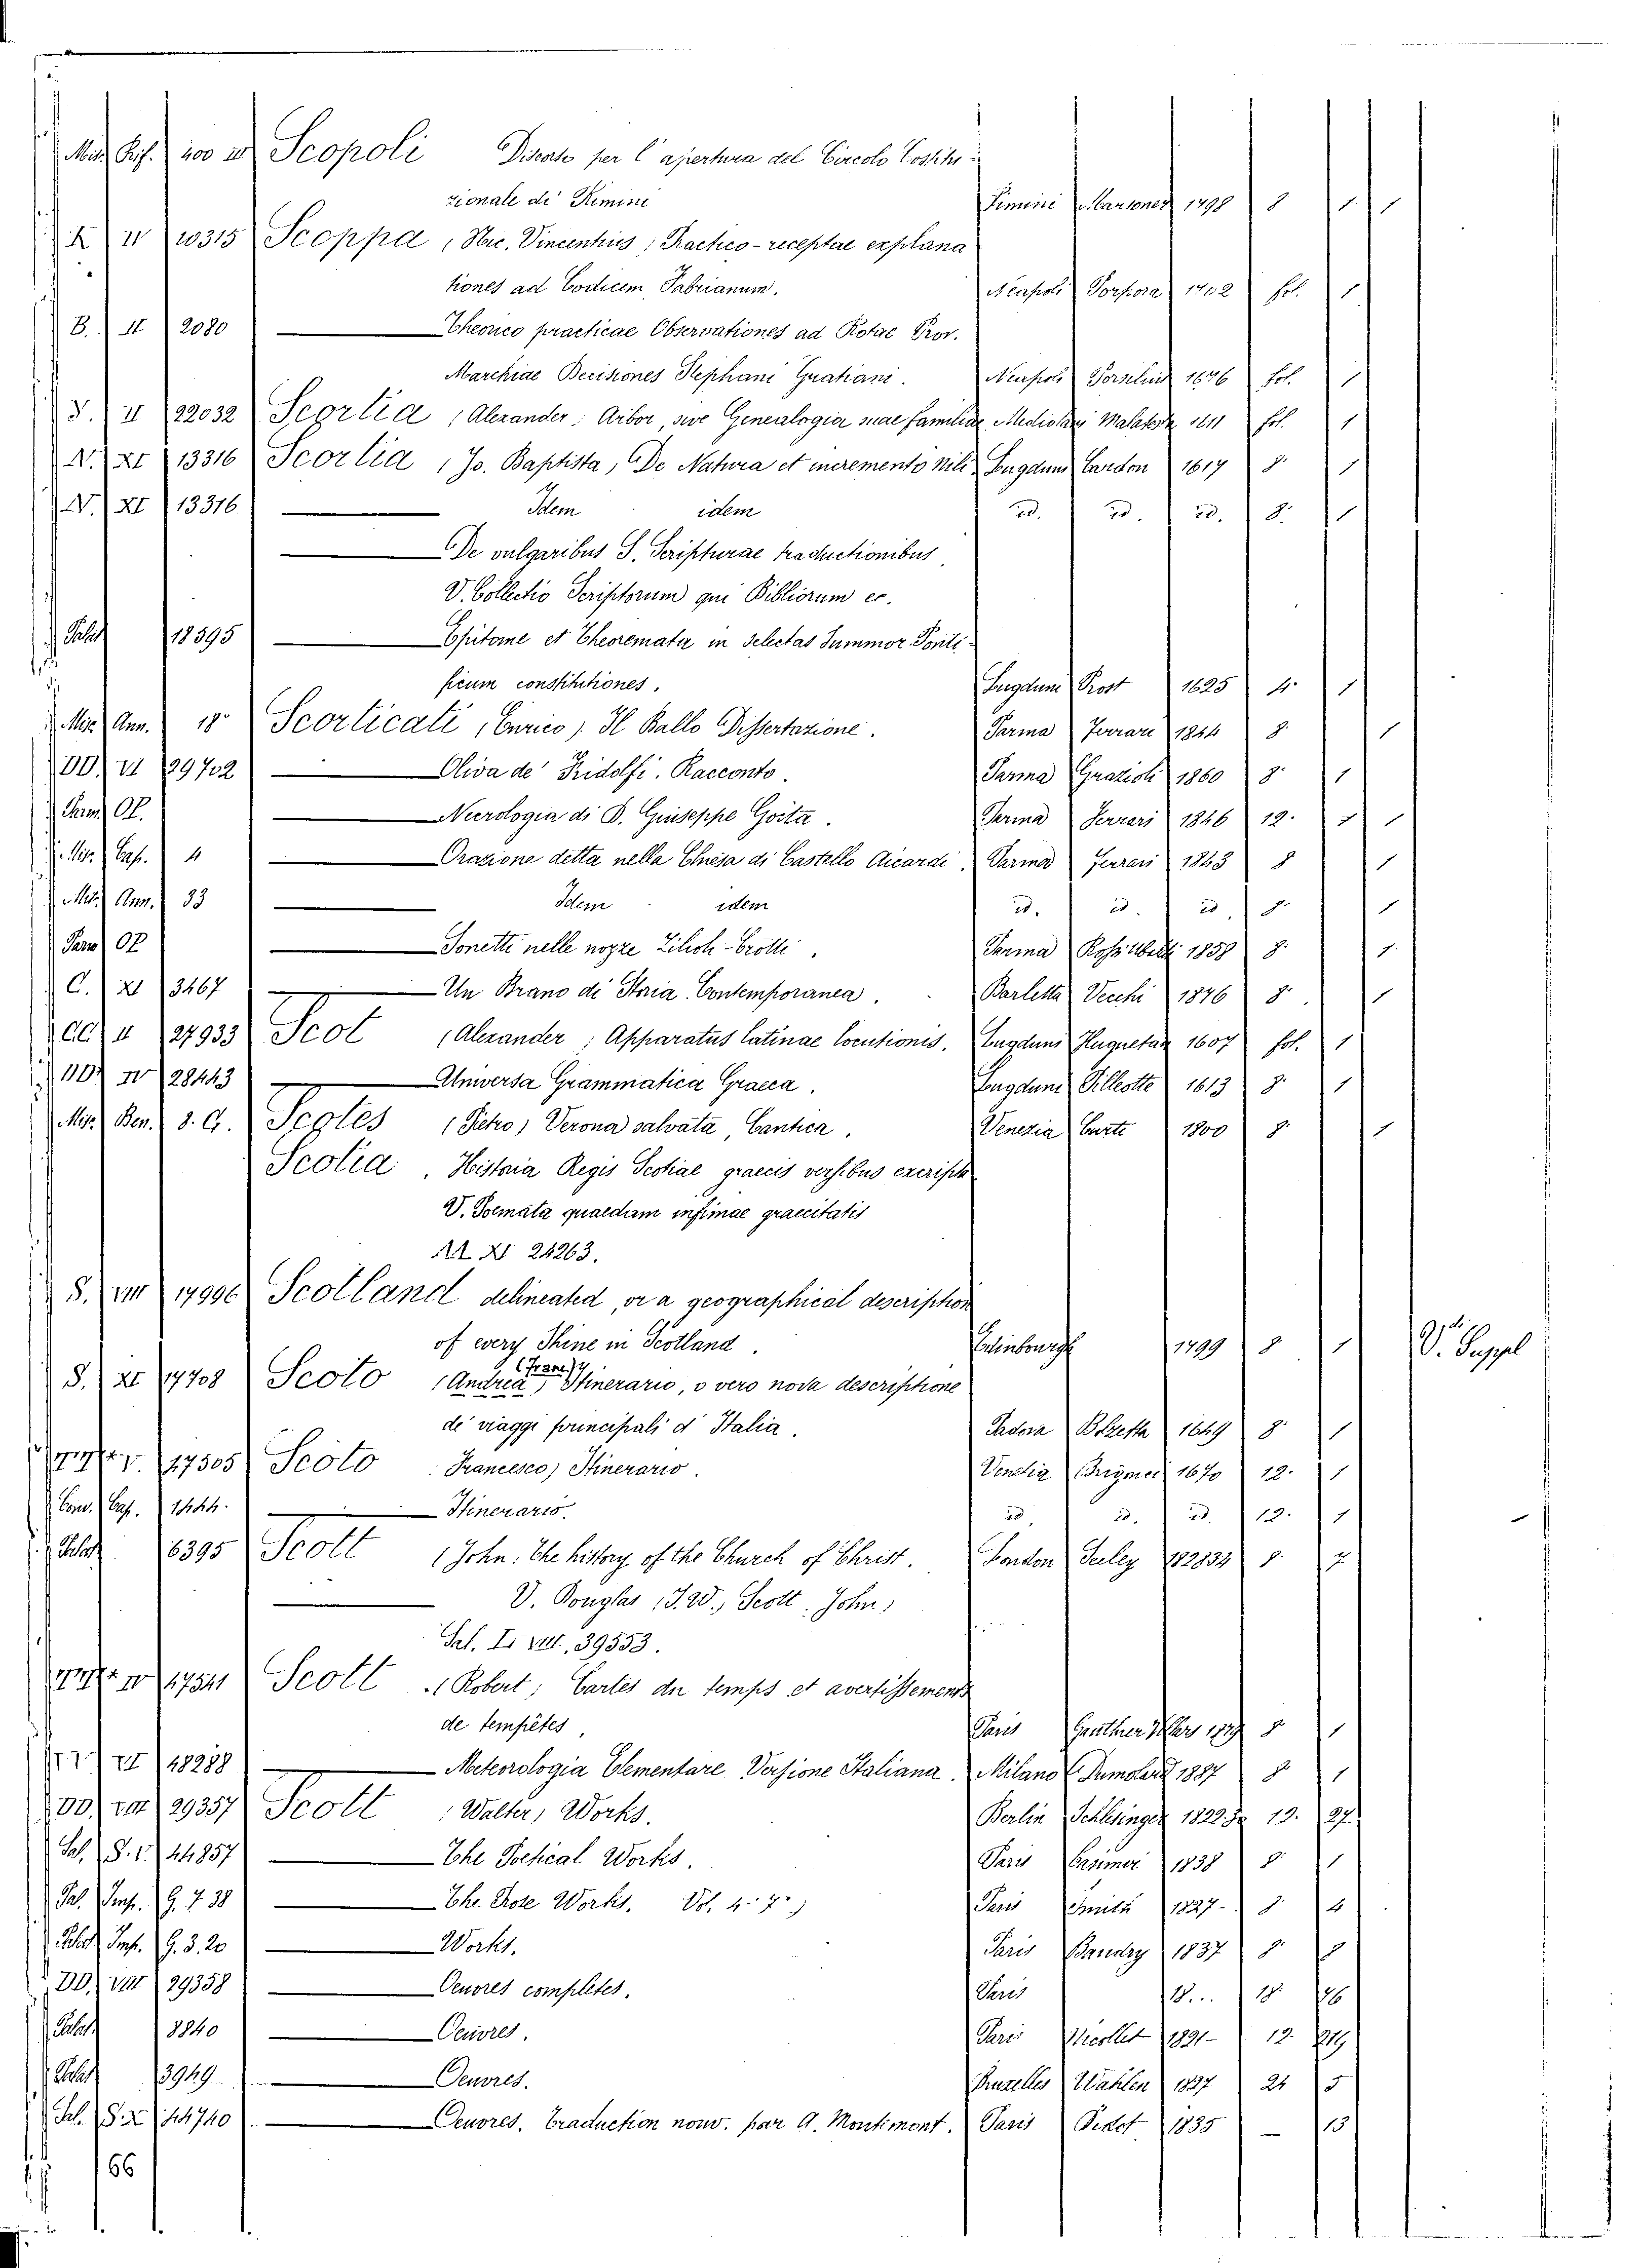 Misc. Rif. 400 20 Scopoli Discorso per l'apertura del Circolo Costitu-
zionale di Rimini Rimini Marsoner 1798 8 1 1
K II 10315 Scoppa, Nic. Vincentius, Practico-receptae explana
tiones ad Codicem Fabrianum. Neapoli Porpora 1702 fol. 1
B. II 2080 Theorico practicae Observationes ad Rotae Prov.
Marchiae Decisiones Stephani Gratiani. Neapoli 1676 fol. 1
S. II 22032 Scortia, Alexander, Arbor, sive Genealogia suae familiae Mediolani Malatesta 1611 fol. 1
N. XI 13316 Scortia, Jo. Baptista, De Natura et incremento Nili Lugduni Cardon 1617 8. 1
N. XI 13316. Idem idem id. id. id. 8. 1
De vulgaribus S. Scripturae traductionibus
V. Collectio Scriptorum qui Bibliorum ec.
Palat 18595 Epitome et Theoremata in selectas Summor. Ponti-
ficum constitutiones. Lugduni Prost 1625 4. 1
Misc. Ann. 18 Scorticati, Enrico, Il Ballo Dissertazione. Parma Ferrari 1844 8. 1
DD. VI 29702 Oliva de' Fridolfi. Racconto. Parma Grazioli 1860 8. 1
Parm. OP. Necrologia di D. Giuseppe Gosta. Parma Ferrari 1846 12. 1
Misc. Cap. 4 Orazione detta nella Chiesa di Castello Aicardi. Parma Ferrari 1843 8 1
Misc. Ann. 33 Idem idem id. id. id. 8. 1
Parm OP Sonetti nelle nozze Zilioli-Crotti. Parma Rossi Ubaldi 1858 8. 1.
C. XI 3467 Un Brano di Storia Contemporanea. Barletta Vecchi 1876 8. 1
CC. II 27933 Scot (Alexander, Apparatus latinae locutionis. Lugduni Huguetan 1607 fol. 1
DD. IV 28443 Universa Grammatica Graeca. Lugduni Pillotte 1613 8. 1
Misc. Ben. 8. G. Scotes (Pietro) Verona salvata, Cantica. Venezia Curti 1800 8. 1
Scotia. Historia Regis Scotiae graecis versibus
V. Poemata quaedam infimae graecitatis
AA XI 24263.
S. VIII 17996 Scotland delineated, or a geographical description
of every Thine in Scotland. Edinbourgh 1799 8 1 V. Suppl
S. XI 17708 Scoto (Andrea, (Franc.) Itinerario, o vero nova descriptione
de' viaggi principali d'Italia. Padova Bolzetta 1649 8. 1
V. 47305 Scoto Francesco, Itinerario. Venetia Brigonci 1670 12. 1
Conv. Cap. 1444. Itinerario. id. id. id. 12. 1
Palat 6395 Scott (John, The history of the Church of Christ. London Seeley 8. 7
V. Douglas (J. W., Scott, John,
Sal. I. VIII. 39553.
IV 47541 Scott (Robert; Cartes du temps et avertissements
de tempêtes. Paris Gauthier Villars 1879 8 1
VI 48288 Meteorologia Elementare Versione Italiana. Milano Dumolard 1887 8. 1
DD. VIII 29357 Scott (Walter, Works. Berlin Schlesinger 1822 12. 27.
Sal. S. V. 44857 The Poetical Works. Paris 1838 8. 1
Pal. Imp. G. 7 38 The Prose Works. Vol. 4-7.) Paris Smith 1827- 8. 4
Palat Imp. G. 3. 20 Works. Paris Baudry 1837 8. 8
DD. VIII 29358 Oeuvres completes. Paris 18... 18. 76
Palat 8840 Oeuvres. Paris Nicollet 1821- 12.
Palat 3949 Oeuvres. Bruxelles Wahlen 1827 24 5
Sal. S. X 44740 Oeuvres. Traduction nouv. par A. Montémont. Paris Didot 1835 — 13
66